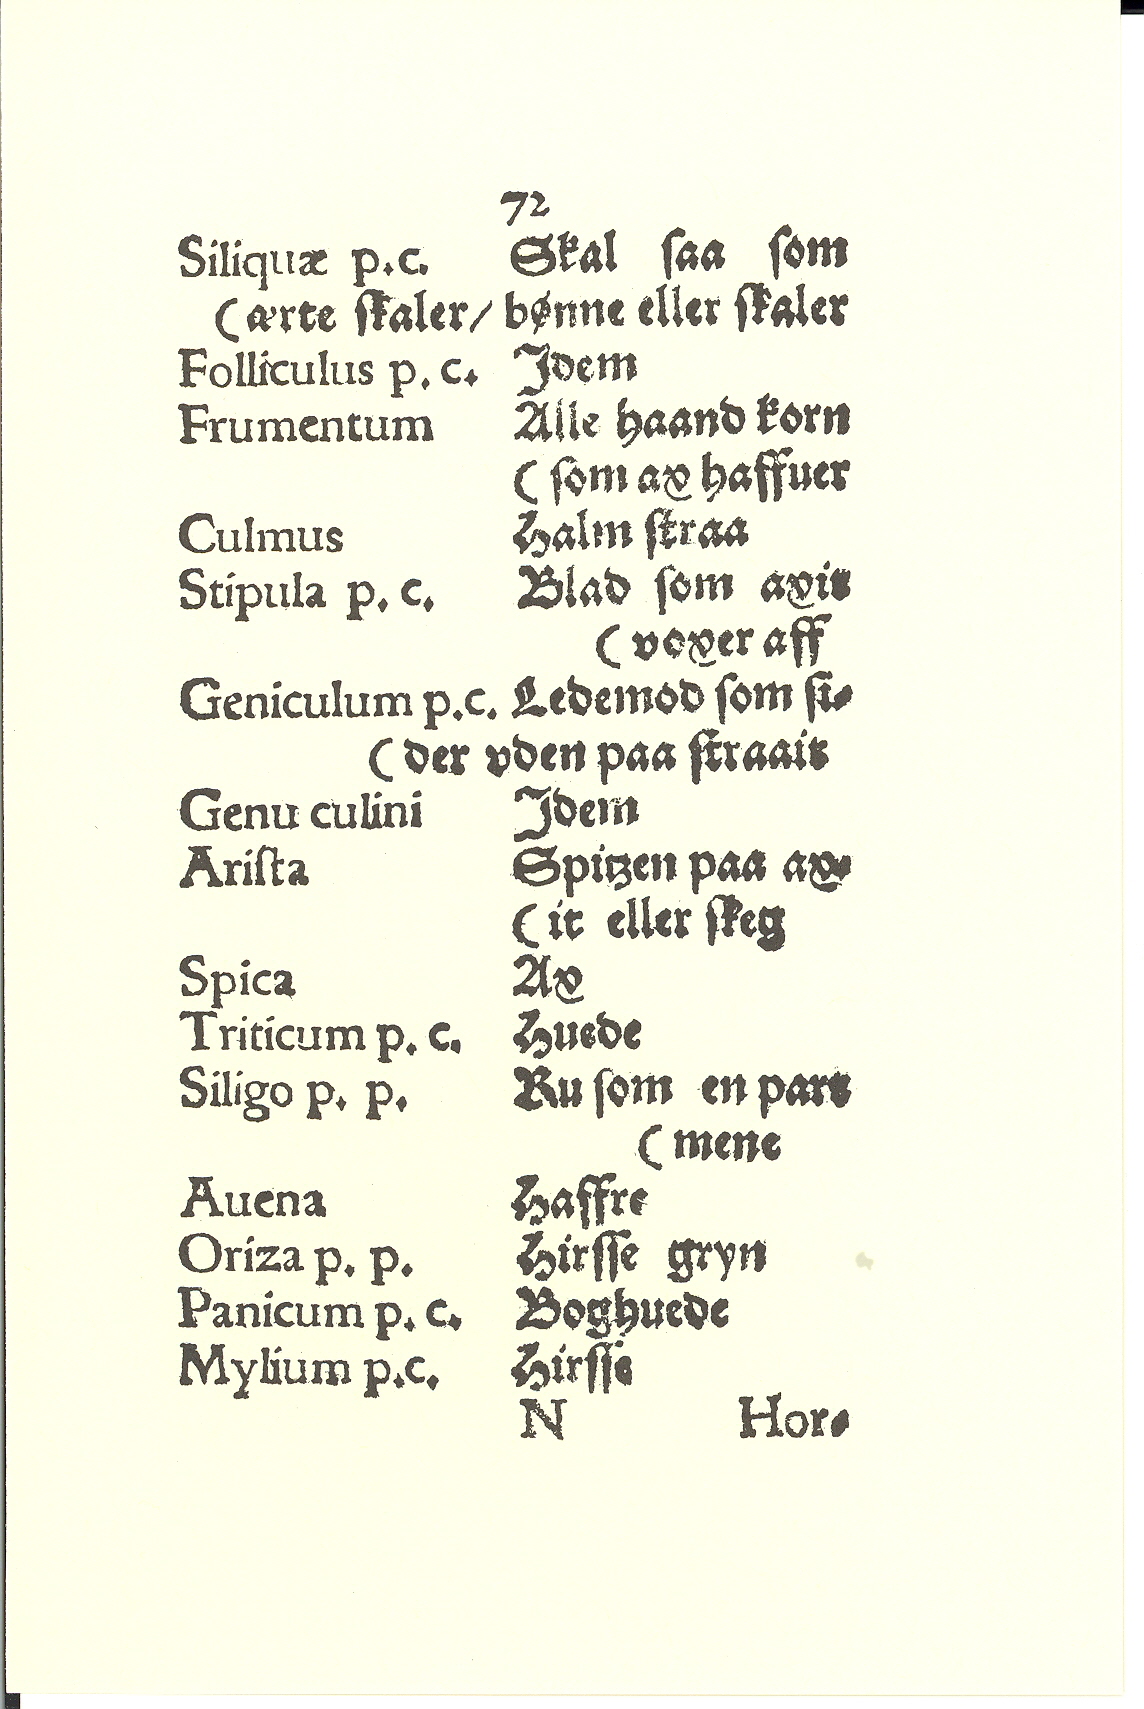 72
Siliquæ p.c. Skal saa som
(ærte skaler/ bønne eller skaler
Folliculus p. c. Idem
Frumentum Alle haand korn
(som ax haffuer
Culmus Halm straa
Stipula p. c. Blad som axit
(voxer aff
Geniculum p.c. Ledemod som si-
(der vden paa straait
Genu culini Idem
Arista Spitzen paa ax-
(it eller skeg
Spica Ax
Triticum p. c. Huede
Siligo p. p. Ru som en part
(mene
Auena Haffre
Oriza p. p. Hirsse gryn
Panicum p. c. Boghuede
Mylium p.c. Hirsse
N Hor-